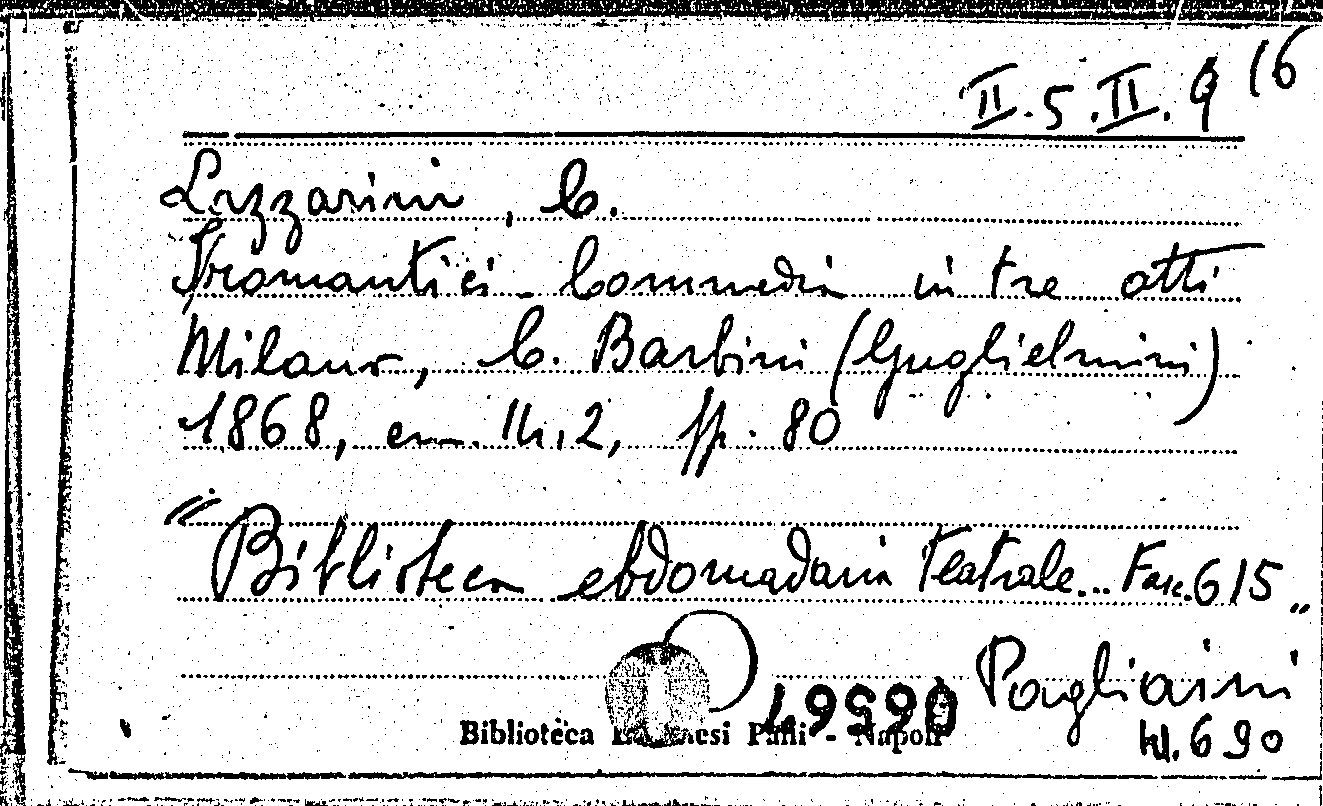 II.5.II.9 16
Lazzarini, C.
Stromantici - Commedia in tre atti
Milano, C. Barbini (Guglielmini)
1868, cm. 14,2, pp. 80
"Biblioteca ebdomadaria teatrale... Fasc. 615"
Pagliaini
065567
Biblioteca Lucchesi Palli - Napoli
III. 690